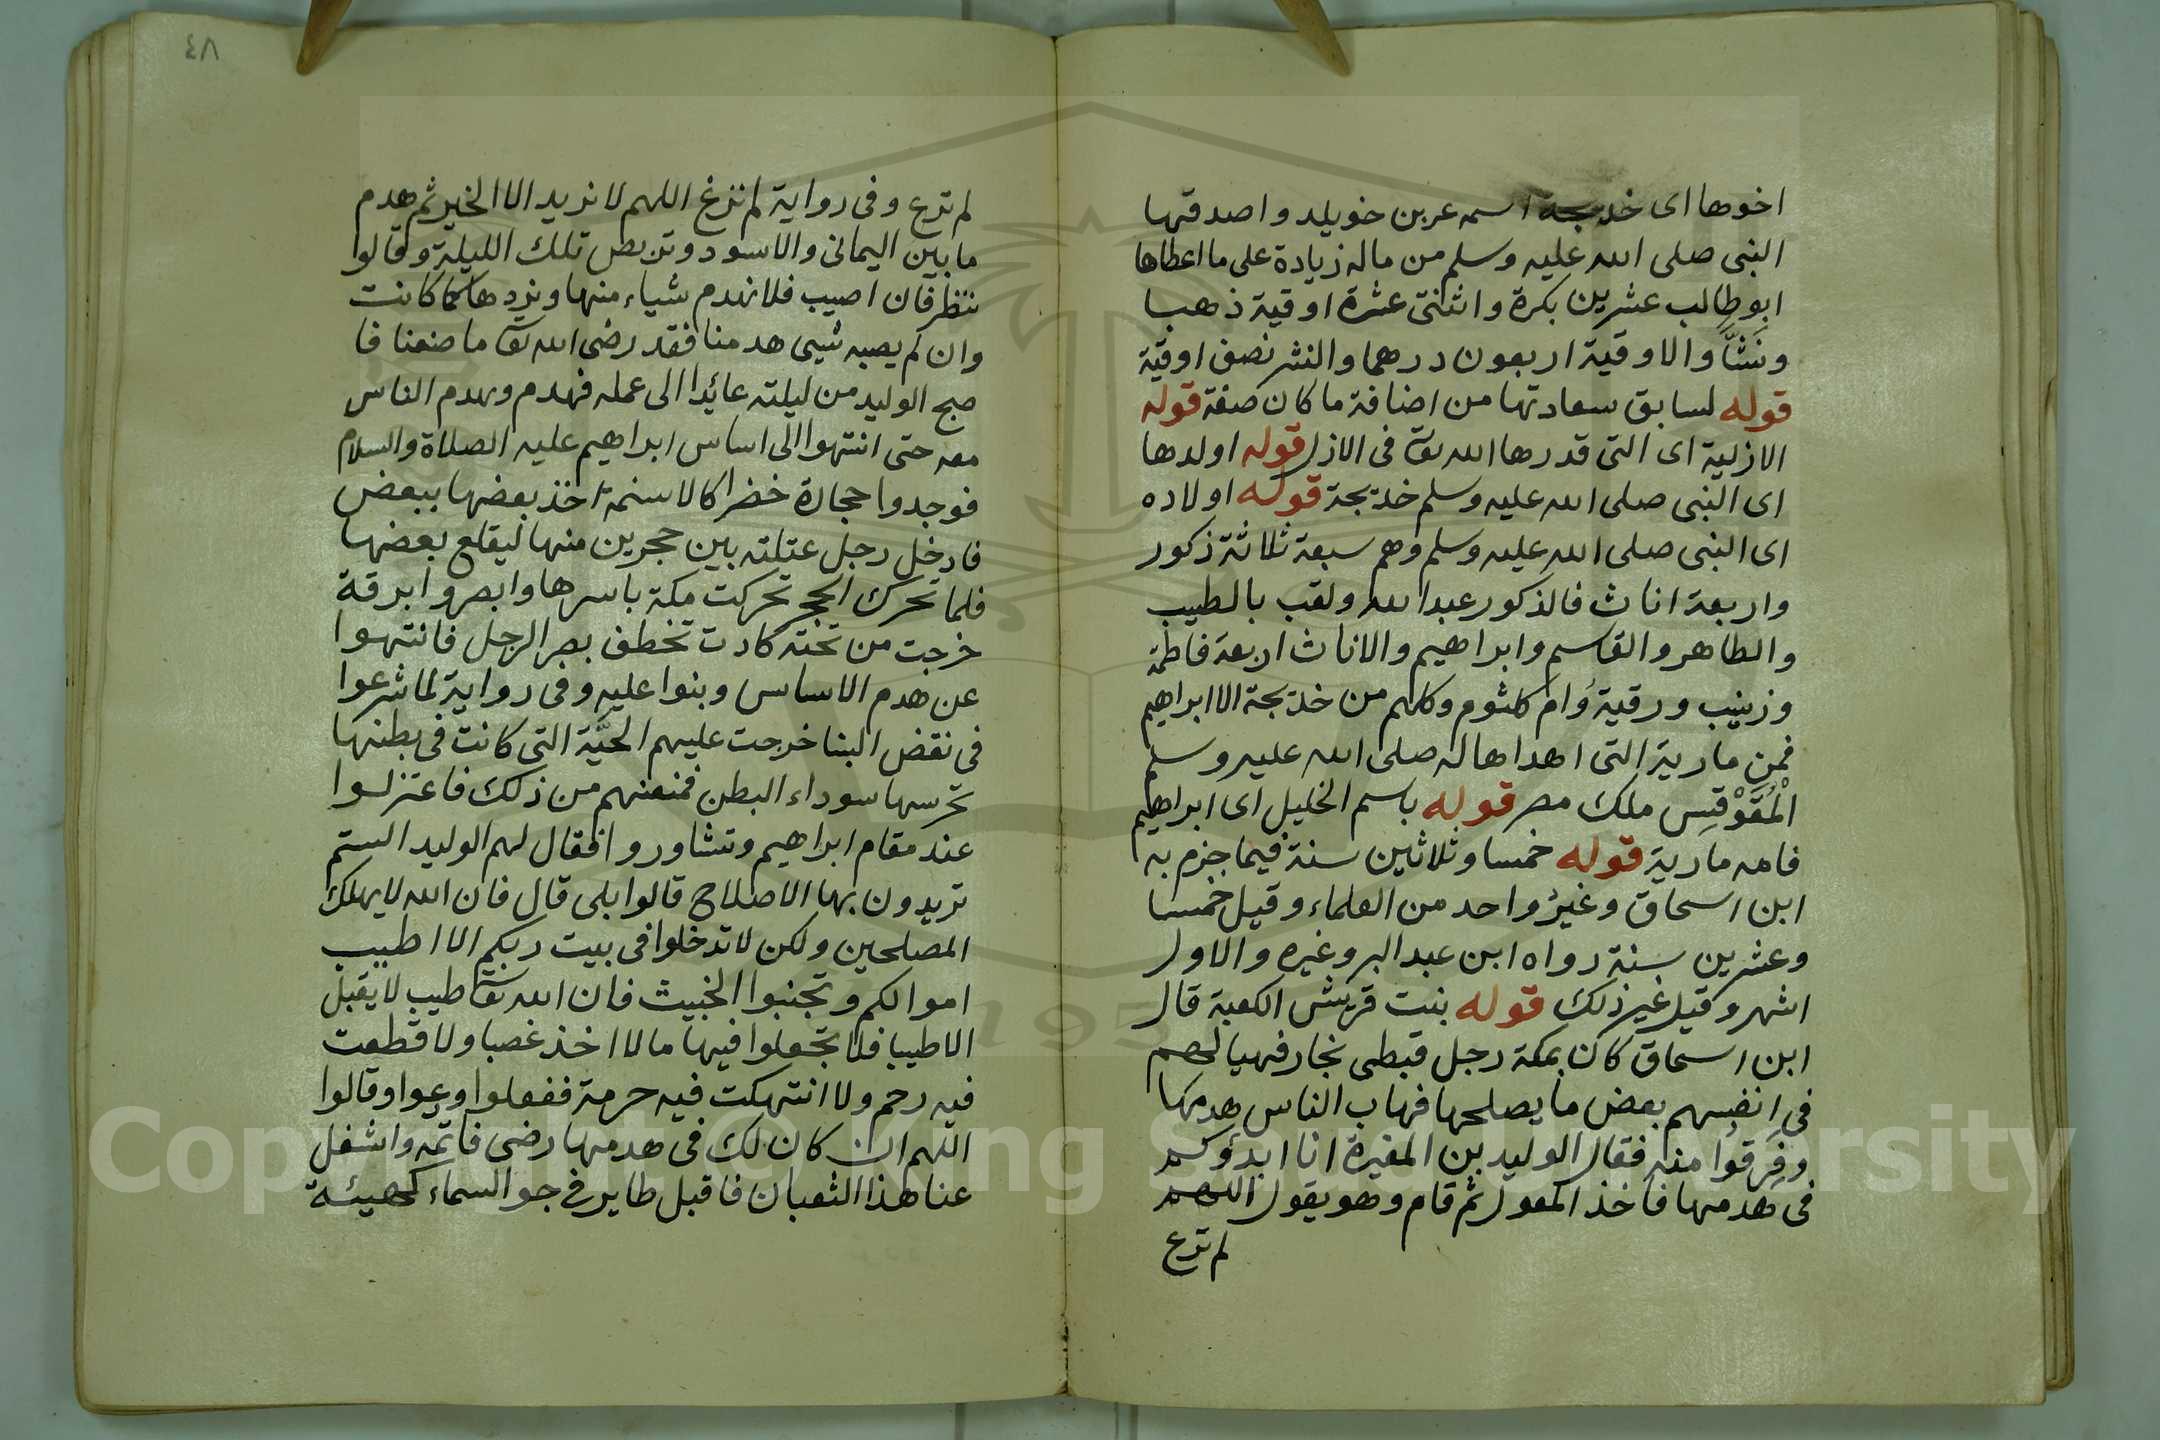 اخوها اى خديجة اسمه عمر بن خويلد واصدقها
النبى صلى الله عليه وسلم من ماله زيادة على ما اعطاها
ابو طالب عشرين بكرة واثنتى عشرة اوقية ذهبا
ونَشَّا والاوقية اربعون درهما والنش نصف اوقية
قوله لسابق سعادتها من اضافة ما كان صفة قوله
الازلية اى التى قدرها الله تعا فى الازل قوله اولدها
اى النبى صلى الله عليه وسلم خديجة قوله اولاده
اى النبى صلى الله عليه وسلم وهم سبعة ثلاثة ذكور
واربعة اناث فالذكور عبد الله ولقب بالطيب
والطاهر والقاسم وابراهيم والاناث اربعة فاطمة
وزينب ورقية وام كلثوم وكلهم من خديجة الا ابراهيم
فمن مارية التى اهداها له صلى الله عليه وسلم
الْمُقَوْقِس ملك مصر قوله باسم الخليل اى ابراهيم
فامه مارية قوله خمسا وثلاثين سنة فيما جزم به
ابن اسحاق وغير واحد من العلماء وقيل خمسا
وعشرين سنة رواه ابن عبد البر وغيره والاول
اشهر وقيل غير ذلك قوله بنت قريش الكعبة قال
ابن اسحاق كان بمكة رجل قبطى نجار فهيا لهم
فى انفسهم بعض ما يصلحها فهاب الناس هدمها
وفَرِقوا منه فقال الوليد بن المغيرة انا ابدؤكم
فى هدمها فاخذ المعول ثم قام وهو يقول اللهم
لم ترع
٤٨
لم ترع وفى رواية لم نزغ اللهم لا نريد الا الخير ثم هدم
ما بين اليمانى والاسود وتربص تلك الليلة وقالوا
ننظر فان اصيب فلا نهدم شياء منها ونردها كما كانت
وان لم يصبه شيى هدمنا فقد رضى الله تعا ما صنعنا فا
صبح الوليد من ليلته عائدا الى عمله فهدم وهدم الناس
معه حتى انتهوا الى اساس ابراهيم عليه الصلاة والسلام
فوجدوا حجارة خضرا كالاسنمة اخذ بعضها ببعض
فادخل رجل عتلته بين حجرين منها ليقلع بعضها
فلما تحرك الحجر تحركت مكة باسرها وابصروا برقة
خرجت من تحته كادت تخطف بصر الرجل فانتهوا
عن هدم الاساس وبنوا عليه وفى رواية لما شرعوا
فى نقض البنا خرجت عليهم الحيَّة التى كانت فى بطنها
تحرسها سوداء البطن فمنعتهم من ذلك فاعتزلوا
عند مقام ابراهيم وتشاوروا فقال لهم الوليد الستم
تريدون بها الاصلاح قالوا بلى قال فان الله لا يهلك
المصلحين ولكن لا تدخلوا فى بيت ربكم الا اطيب
اموالكم وتجنبوا الخبيث فان الله تعا طيب لا يقبل
الا طيبا فلا تجعلوا فيها مالا اخذ غصبا ولا قطعت
فيه رحم ولا انتهكت فيه حرمة ففعلوا ودعوا وقالوا
اللهم ان كان لك فى هدمها رضى فاتمه واشغل
عنا هذا الثعبان فاقبل طاير فى جو السماء كهيئة
Copyright © King Saud University